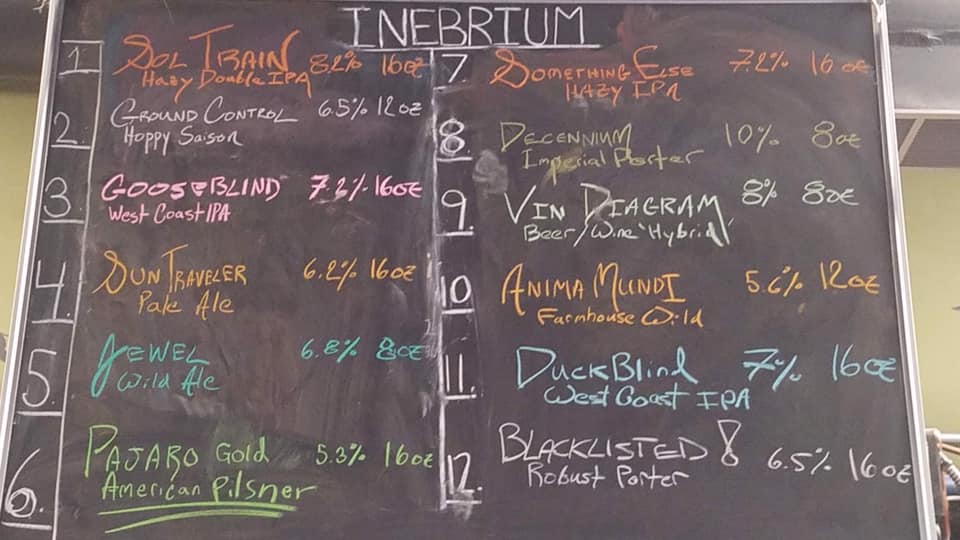 INEBRIUM
1 SOL TRAIN 8.2% 16oz
Hazy Double IPA
2. GROUND CONTROL 6.5% 12oz
Hoppy Saison
3. GOOSEBLIND 7.2% 16oz
West Coast IPA
4. SUN TRAVELER 6.2% 16oz
Pale Ale
5. JEWEL 6.8% 8oz
Wild Ale
6. PAJARO Gold 5.3% 16oz
American Pilsner
7 SOMETHING ELSE 7.2% 16oz
HAZY IPA
8. DECENNIUM 10% 8oz
Imperial Porter
9. VIN DIAGRAM 8% 8oz
Beer/Wine 'Hybrid'
10 ANIMA MUNDI 5.6% 12oz
Farmhouse Wild
11. DuckBlind 7% 16oz
West Coast IPA
12. BLACKLISTED! 6.5% 16oz
Robust Porter